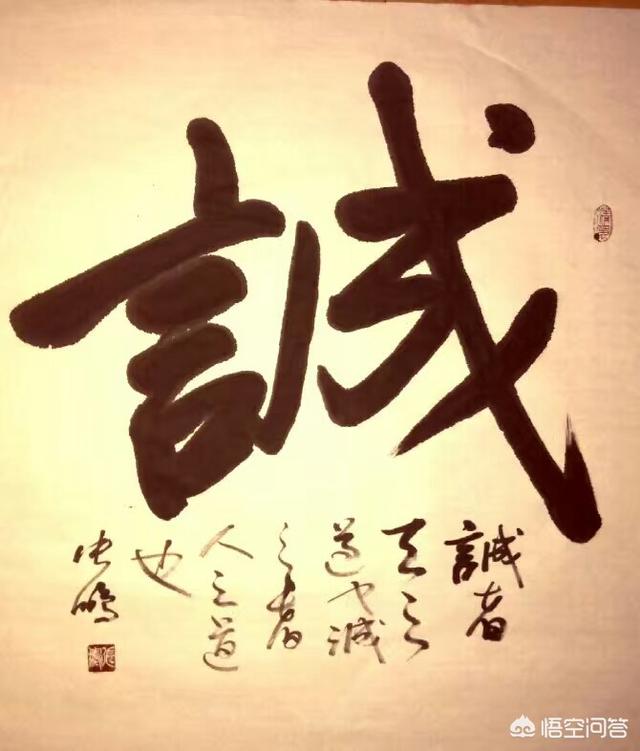 誠
誠者
天之
道也誠
之者
人之道
也
张鹏
悟空问答